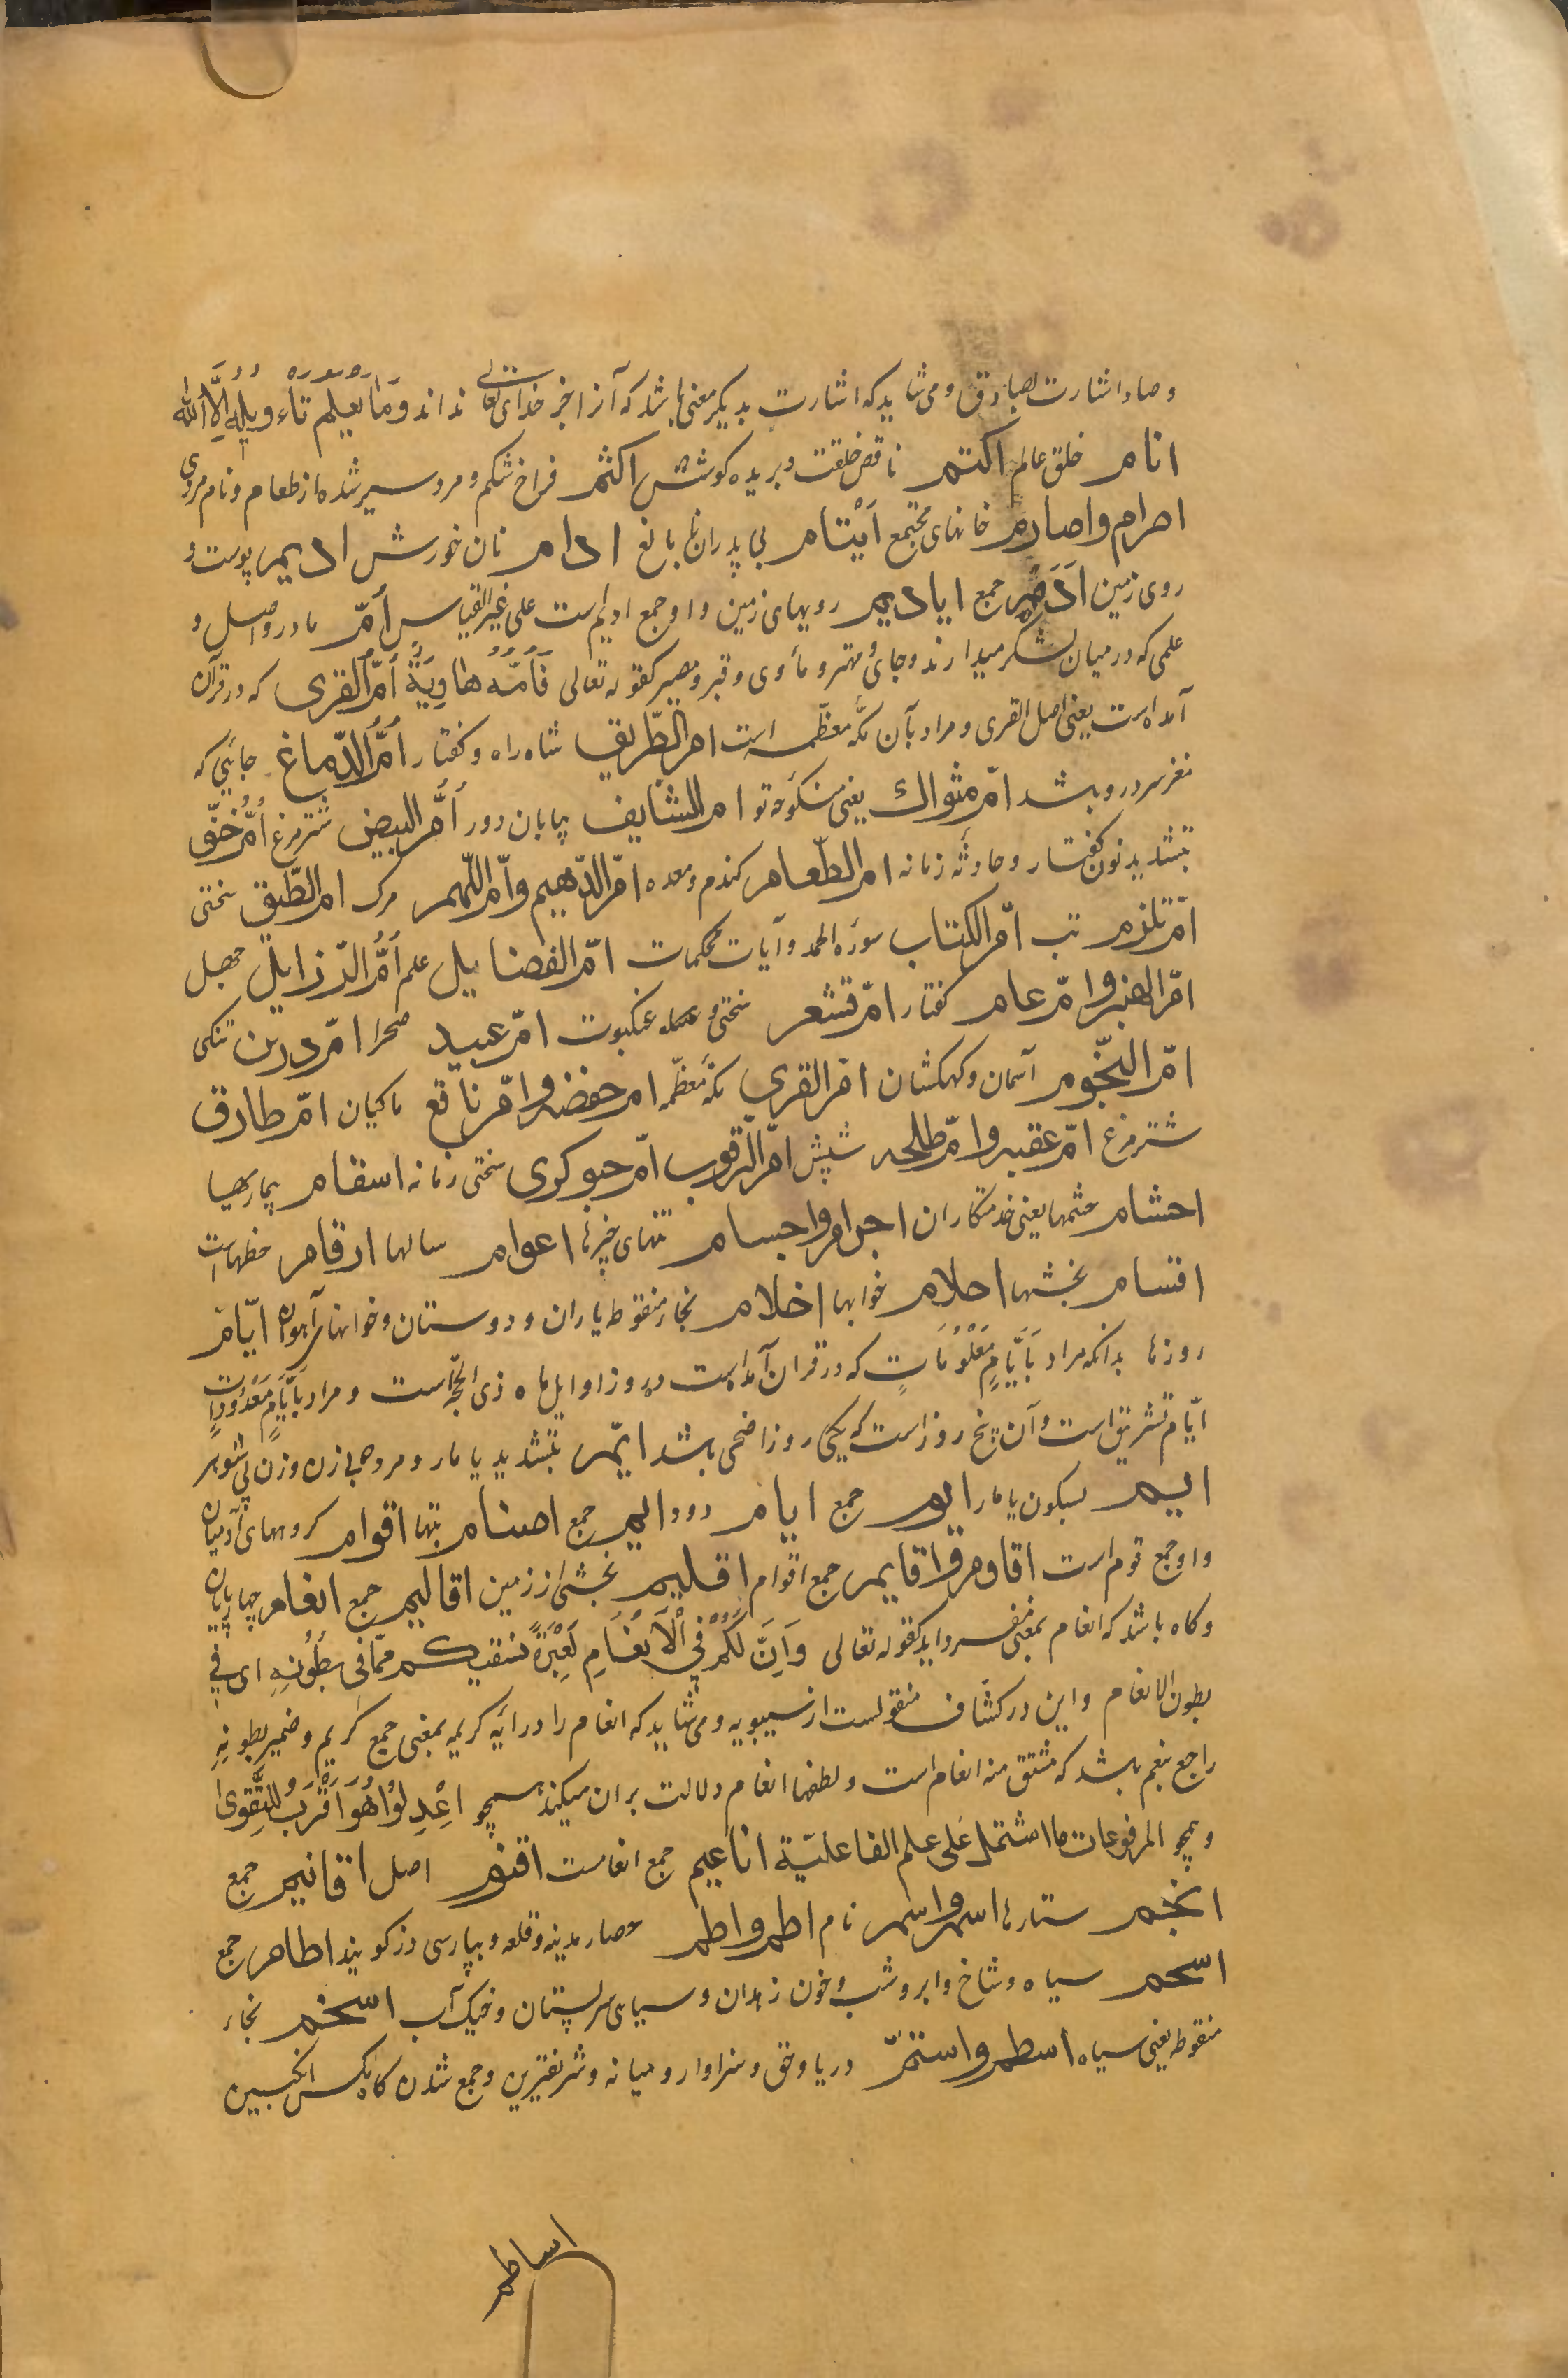 وصاد اشارت بصادق و می شاید که اشارت بدیگر معنی باشد که آنرا جز خدای تعالی نداند وَمَا یَعْلَمُ تَاْوِیلَهُ اِلَّا اللّٰه
انام خلق عالم اکتم ناقص خلقت و بریده کوشش اکثم فراخ شکم و مرد سیر شده از طعام و نام مردی
احرام واصارم خانهای مجتمع اَیْتام بی پدران نا بالغ ادام نان خورش ادیم پوست و
روی زمین اَدَم جمع ایادیم رویهای زمین و او جمع ادیم است علی غیر القیاس اُمّ مادر و اصل و
علمی که در میان لشکر میدارند و جای و مهتر و مأوی و قبر و مصیر کقوله تعالی فَاُمُّهُ هَاوِیَةٌ اُمّ القری که در قرآن
آمده است یعنی اصل القری و مراد بآن مکّه معظّمه است ام الطّریق شاه راه و کفتار اُمّ الدّماغ جائی که
مغز سر درو باشد امّ مثواک یعنی منکوحه تو ام الشایف بیابان دور اُمّ البیض شتر مرغ اُمّ خنّق
بتشدید نون کفتار و حادثه زمانه ام الطّعام کندم و معده امّ الدّهیم وامّ اللّهیم مرک ام الطّبق سختی
امّ تلزم تب امّ الکتاب سوره الحمد و آیات محکمات امّ الفضایل علم اُمّ الرّذایل جهل
امّ الهنبر وامّ عامر کفتار امّ قشعر سختی و عنکبوت امّ عبید صحرا امّ درین تنکی
امّ النّجوم آسمان و کهکشان امّ القری مکّه معظّمه ام حفضه وامّ ناقع ماکیان امّ طارق
شتر مرغ امّ عقبه وامّ طلحه شپش امّ الرّقوب امّ حبوکری سختی زمانه اسقام بیماریها
احشام حشمها یعنی خدمتکاران اجرام واجسام تنهای چیزها اعوام سالها ارقام خطهاست
اقسام بخشها احلام خوابها اخلام بخاء منقوط یاران و دوستان و خوابهای آهوان ایّام
روزها بدانکه مراد بِاَیَّامٍ مَعْلُومَاتٍ که در قران آمده است ده روز اوایل ماه ذی الحجّه است و مراد بِاَیَّامٍ مَعْدُودَاتٍ
ایّام تشریق است و آن پنج روز است که یکی روز اضحی باشد ایّم بتشدید یا مار و مرد بی زن و زن بی شوهر
ایم بسکون یا مار ایوم جمع ایام دود ایم جمع اصنام بتها اقوام کروههای آدمیان
و او جمع قوم است اقاوم واقایم جمع اقوام اقلیم بخشی از زمین اقالیم جمع انعام چهارپایان
وکاه باشد که انعام بمعنی مفرد اید کقوله تعالی وَاِنَّ لَکُمْ فِی الْاَنْعَامِ لَعِبْرَةً نسقیکم ممّا فی بطُونِهِ ای فی
بطون الانعام و این در کشاف منقولست از سیبویه و می شاید که انعام را در ایه کریمه بمعنی جمع کریم و ضمیر بطونه
راجع بنعم باشد که مشتق منه انعام است و لطفها انعام دلالت بران میکند همچو اعْدِلُوا هُوَ اَقْرَبُ لِلتَّقْوی
و همچو المرفوعات ما اشتمل عَلی علم الفاعلیّة اناعیم جمع انعامست اقنوم اصل اقانیم جمع
انجم ستارها اسم واسم نام اطم واطم حصار مدینه و قلعه و بپارسی دز کویند اطام جمع
اسحم سیاه و شاخ و ابر و شب و خون زهدان و سیاهی سر پستان و خیک آب اسخم بخاء
منقوطه یعنی سیاه اسطم واستمّ دریا و حق و سزاوار و میانه و شریفترین و جمع شدن کاه مکس انکبین
اساطم